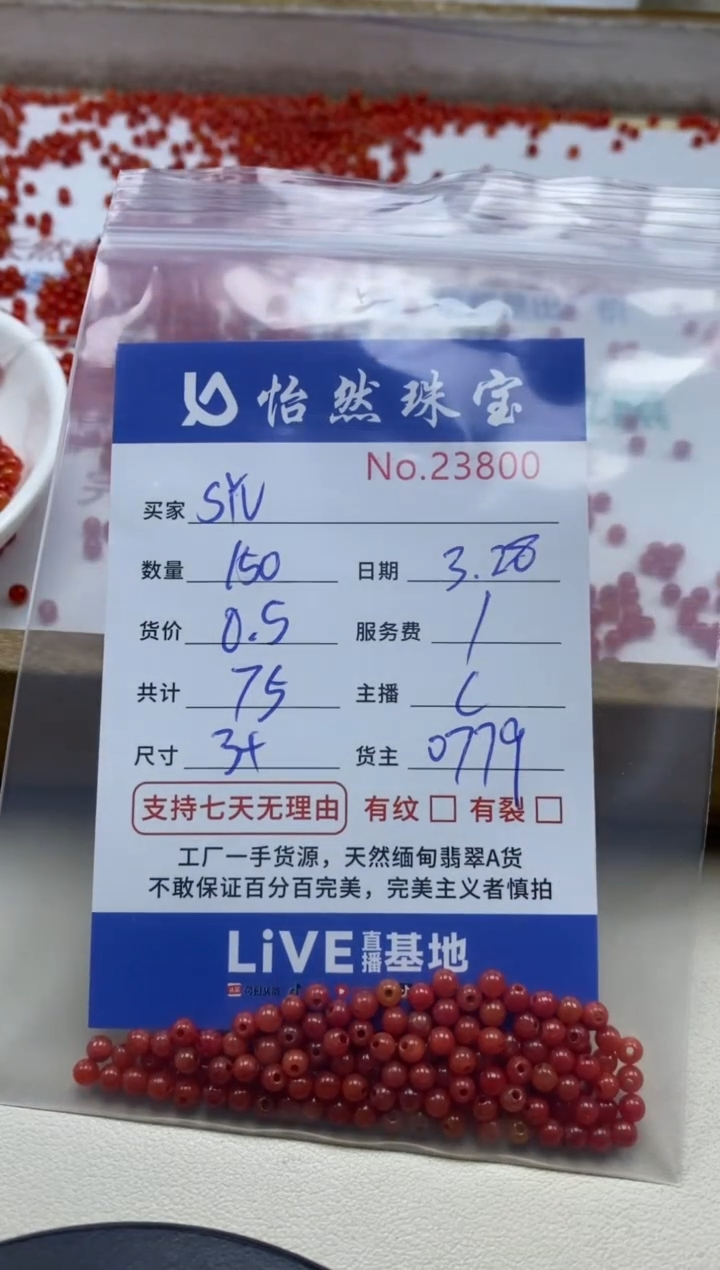 怡然珠宝
No.23800
买家 SYU
数量 150 日期 3.28
货价 0.5 服务费 /
共计 75 主播 C
尺寸 3+ 货主 0779
支持七天无理由 有纹 □ 有裂 □
工厂一手货源，天然缅甸翡翠A货
不敢保证百分百完美，完美主义者慎拍
LiVE 直播基地